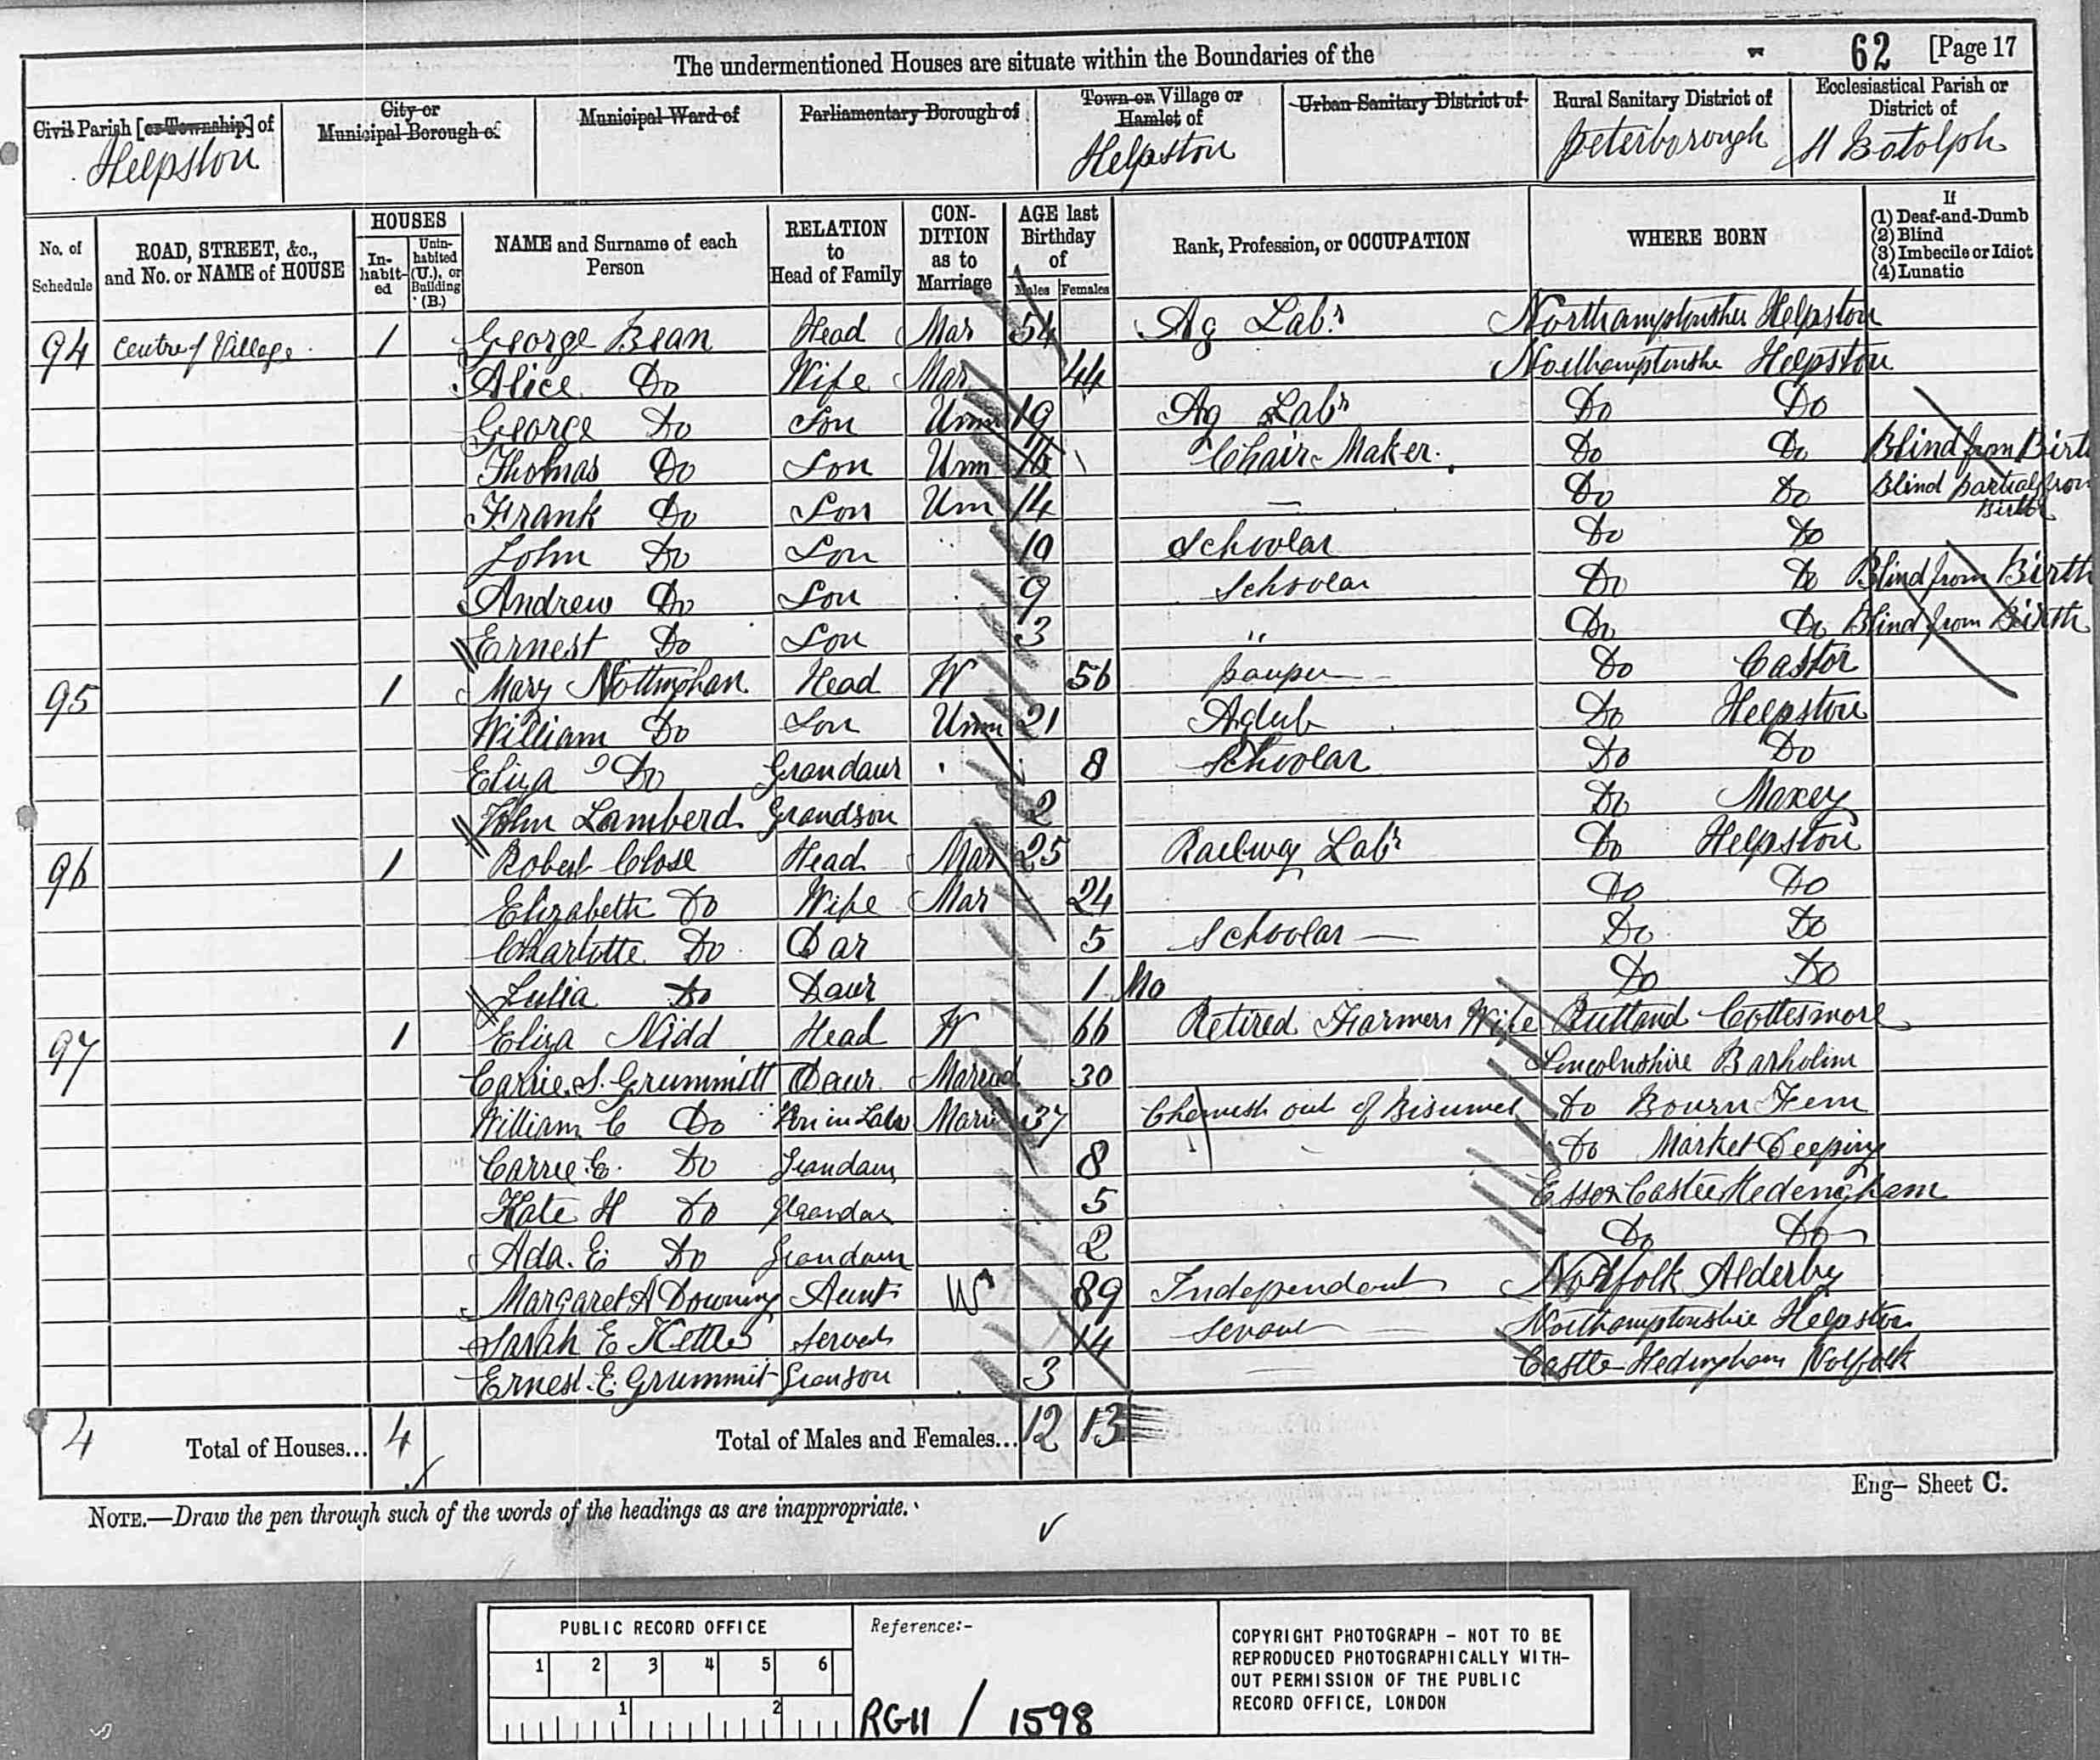 The undermentioned Houses are situate within the Boundaries of the 62 [Page 17
Civil Parish [or Township] of City or Municipal Borough of Municipal Ward of Parliamentary Borough of Town or Village or Hamlet of Urban Sanitary District of Rural Sanitary District of Ecclesiastical Parish or District of
Helpston Helpston Peterborough St Botolph
No. of Schedule ROAD, STREET, &c., and No. or NAME of HOUSE HOUSES In-habit-ed Unin-habited (U.), or Building (B.) NAME and Surname of each Person RELATION to Head of Family CON-DITION as to Marriage AGE last Birthday of Males Females Rank, Profession, or OCCUPATION WHERE BORN If (1) Deaf-and-Dumb (2) Blind (3) Imbecile or Idiot (4) Lunatic
94 Centre of Village 1 George Bean Head Mar 54 Ag Labr Northamptonshire Helpston
Alice Do Wife Mar 44 Northamptonshe Helpston
George Do Son Unm 19 Ag Labr Do Do
Thomas Do Son Unm 16 Chair Maker Do Do Blind from Birth
Frank Do Son Um 14 — Do Do Blind partial from Birth
John Do Son 10 Schoolar Do Do
Andrew Do Son 9 Schoolar Do Do Blind from Birth
Ernest Do Son 3 " Do Do Blind from Birth
95 1 Mary Nottinghan Head W 56 pauper Do Castor
William Do Son Unm 21 Aglab Do Helpston
Eliza Do Grandaur 8 Schoolar Do Do
John Lamberd Grandson 2 Do Maxey
96 1 Robert Close Head Mar 25 Railway Labr Do Helpston
Elizabeth Do Wife Mar 24 Do Do
Charlotte Do Dar 5 Schoolar — Do Do
Julia Do Daur 1 Mo Do Do
97 1 Eliza Nidd Head W 66 Retired Farmers Wife Rutland Cottesmore
Carrie S. Grummitt Daur Maried 30 Lincolnshire Barholm
William C Do Son in Law Mari 37 Chemish out of Bisumes Do Bourn Fem
Carrie E. Do Grandaur 8 Do Market Deeping
Kate H Do Grandar 5 Essex Castle Hedengham
Ada. E Do Grandaur 2 Do Do
Margaret A Downing Aunt W 89 Independent Norfolk Alderby
Sarah E Kettle Servch 14 Servant — Northamptonshie Helpston
Ernest. E Grummit Granson 3 — Castle Hedingham Nolfolk
4 Total of Houses... 4 Total of Males and Females... 12 13
Eng– Sheet C.
NOTE.—Draw the pen through such of the words of the headings as are inappropriate.
PUBLIC RECORD OFFICE
1 2 3 4 5 6
1 2
Reference:-
RG11 / 1598
COPYRIGHT PHOTOGRAPH – NOT TO BE
REPRODUCED PHOTOGRAPHICALLY WITH-
OUT PERMISSION OF THE PUBLIC
RECORD OFFICE, LONDON